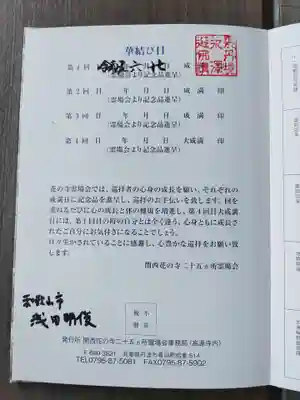 華結び目
第1回 令和五 六 北 成
(霊場会より記念品進呈)
第2回目 年 月 日 成満 印
(霊場会より記念品進呈)
第3回目 年 月 日 成満 印
(霊場会より記念品進呈)
第4回目 年 月 日 大成満 印
(霊場会より記念品進呈)
花の寺霊場会では、巡拝者の心身の成長を願い、それぞれの
成満日に記念品を進呈し、巡拝のお手伝いを致します。回
を重ねるたびに心の成長と体の健康を増進し、第4回目大成満
日には、第1回目の時の自分とは全く違う、心もからだも成長さ
れたご自分にお気付きになることでしょう。
日々生かされていることに感謝し、心豊かな巡拝をお願い致
します。
関西花の寺二十五カ所霊場会
和歌山市
浅田明俊
不許
複製
発行所 関西花の寺二十五カ所霊場会事務局(高源寺内)
兵庫県丹波市青垣町桧倉514
TEL0795-87-5081 FAX0795-87-5902